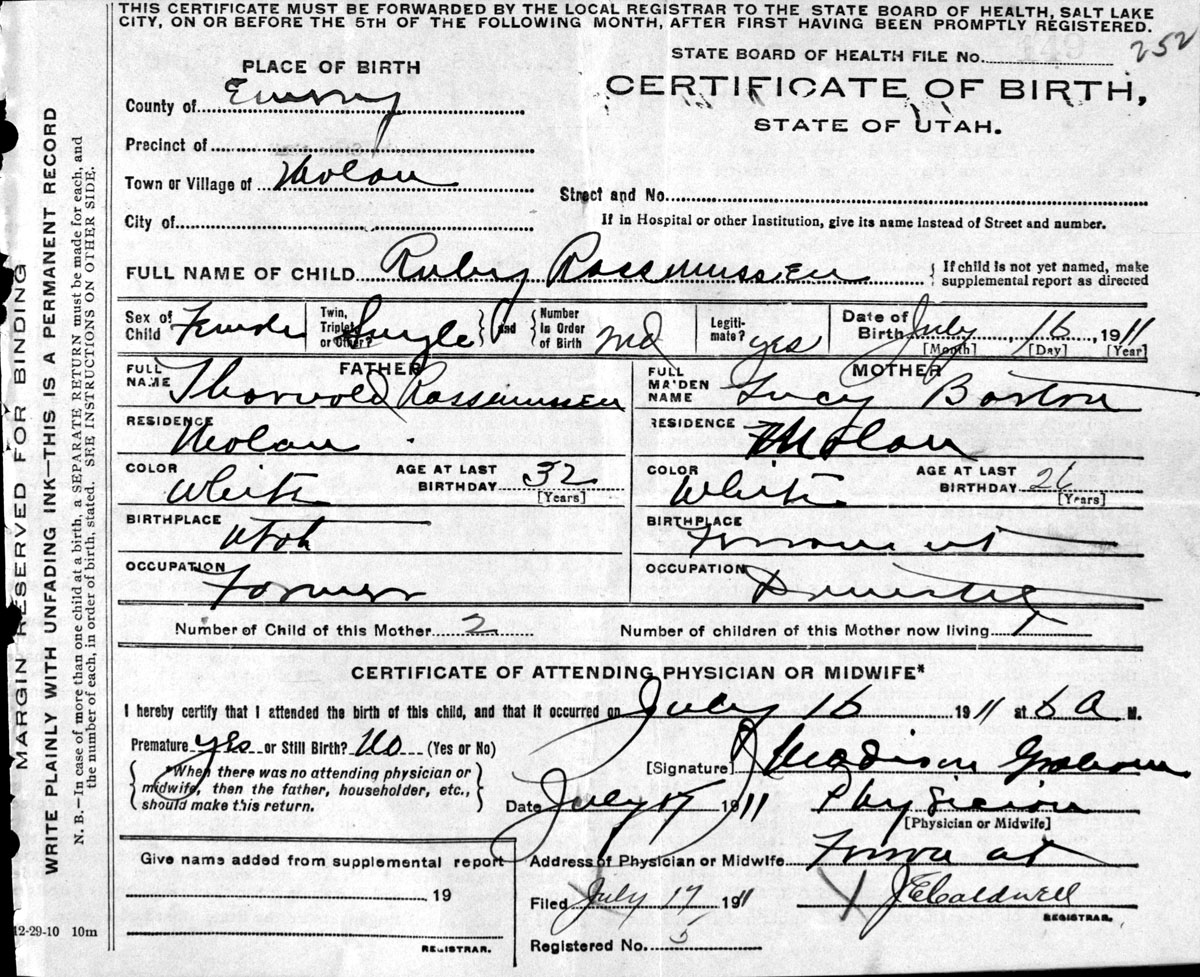 THIS CERTIFICATE MUST BE FORWARDED BY THE LOCAL REGISTRAR TO THE STATE BOARD OF HEALTH, SALT LAKE
CITY, ON OR BEFORE THE 5TH OF THE FOLLOWING MONTH, AFTER FIRST HAVING BEEN PROMPTLY REGISTERED.
252
STATE BOARD OF HEALTH FILE No.
PLACE OF BIRTH
CERTIFICATE OF BIRTH,
STATE OF UTAH.
County of Emery
Precinct of
Town or Village of Molen
Street and No.
City of
If in Hospital or other Institution, give its name instead of Street and number.
FULL NAME OF CHILD Ruby Rassmussen
If child is not yet named, make
supplemental report as directed
Sex of Child Female
Twin, Triplet or Other? Single
and Number in Order of Birth 2nd
Legitimate? yes
Date of Birth July 16, 1911
[Month] [Day] [Year]
FATHER
MOTHER
FULL NAME Thorwold Rassmussen
FULL MAIDEN NAME Lucy Barton
RESIDENCE Molen
RESIDENCE Molen
COLOR White AGE AT LAST BIRTHDAY 32 [Years]
COLOR White AGE AT LAST BIRTHDAY 26 [Years]
BIRTHPLACE Utah
BIRTHPLACE Ferron ut
OCCUPATION Farmer
OCCUPATION Domestic
Number of Child of this Mother 2
Number of children of this Mother now living
CERTIFICATE OF ATTENDING PHYSICIAN OR MIDWIFE*
I hereby certify that I attended the birth of this child, and that it occurred on July 16 1911 at 6 A M.
Premature yes or Still Birth? No (Yes or No)
*When there was no attending physician or
midwife, then the father, householder, etc.,
should make this return.
[Signature] Madison Graham
Date July 17 1911 Physician
[Physician or Midwife]
Give name added from supplemental report
19
REGISTRAR.
Address of Physician or Midwife Ferron ut
Filed July 17 1911 J E Caldwell
REGISTRAR.
Registered No. 5
12-29-10 10m
MARGIN RESERVED FOR BINDING
WRITE PLAINLY WITH UNFADING INK—THIS IS A PERMANENT RECORD
N. B.—In case of more than one child at a birth, a SEPARATE RETURN must be made for each, and
the number of each, in order of birth, stated. SEE INSTRUCTIONS ON OTHER SIDE.